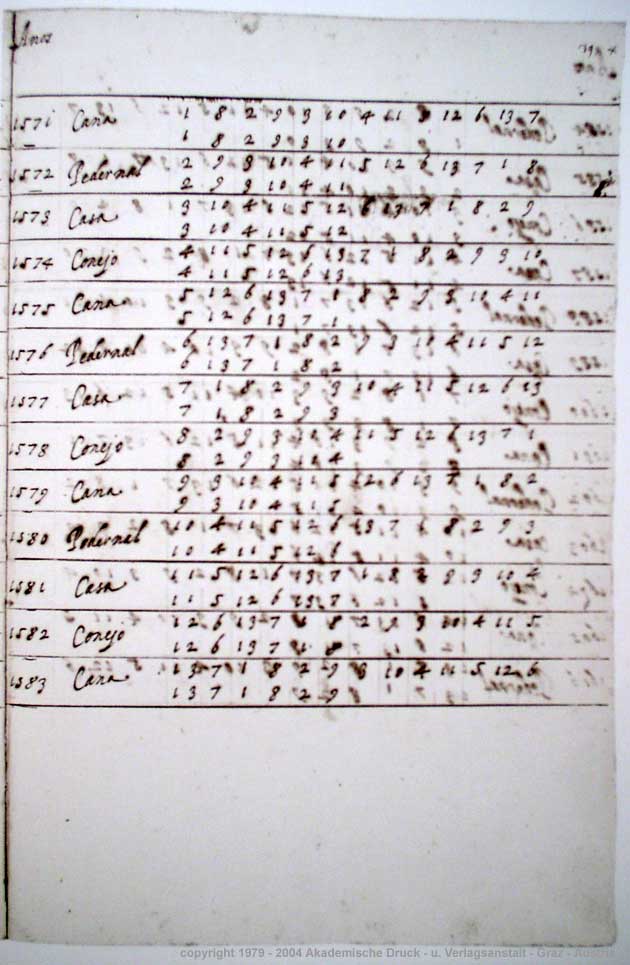 Anos
1571 Cana 1 8 2 9 3 10 4 11 5 12 6 13 7
1 8 2 9 3 10
1572 Pedernal 2 9 3 10 4 11 5 12 6 13 7 1 8
2 9 3 10 4 11
1573 Casa 3 10 4 11 5 12 6 13 7 1 8 2 9
3 10 4 11 5 12
1574 Conejo 4 11 5 12 6 13 7 1 8 2 9 3 10
4 11 5 12 6 13
1575 Cana 5 12 6 13 7 1 8 2 9 3 10 4 11
5 12 6 13 7 1
1576 Pedernal 6 13 7 1 8 2 9 3 10 4 11 5 12
6 13 7 1 8 2
1577 Casa 7 1 8 2 9 3 10 4 11 5 12 6 13
7 1 8 2 9 3
1578 Conejo 8 2 9 3 10 4 11 5 12 6 13 7 1
8 2 9 3 10 4
1579 Cana 9 3 10 4 11 5 12 6 13 7 1 8 2
9 3 10 4 11 5
1580 Pedernal 10 4 11 5 12 6 13 7 1 8 2 9 3
10 4 11 5 12 6
1581 Casa 11 5 12 6 13 7 1 8 2 9 3 10 4
11 5 12 6 13 7
1582 Conejo 12 6 13 7 1 8 2 9 3 10 4 11 5
12 6 13 7 1 8
1583 Cana 13 7 1 8 2 9 3 10 4 11 5 12 6
13 7 1 8 2 9
copyright 1979 - 2004 Akademische Druck - u. Verlagsanstalt - Graz - Austria